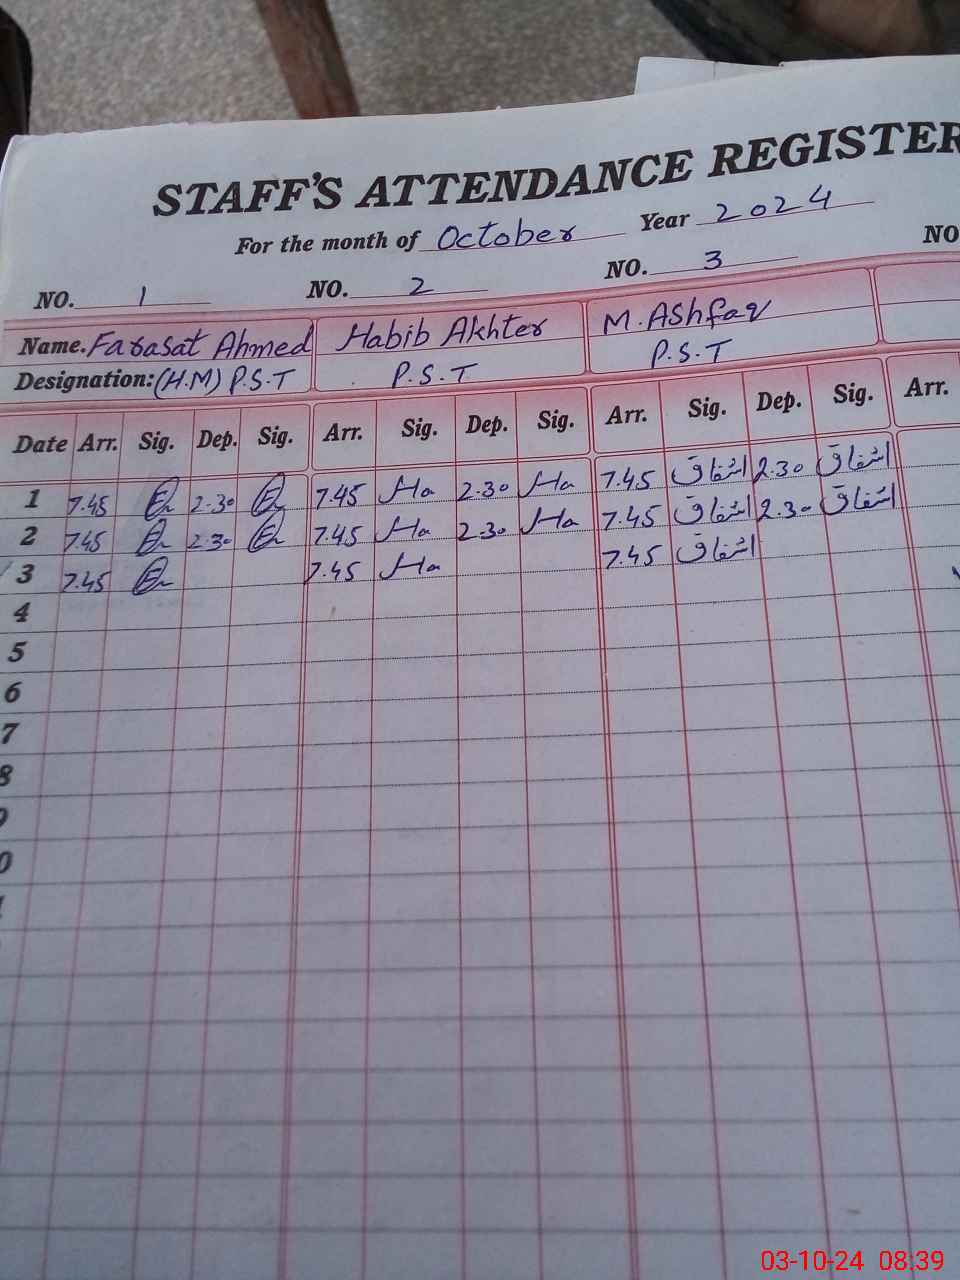 STAFF'S ATTENDANCE REGISTER
For the month of October Year 2024
NO. 1 NO. 2 NO. 3 NO
Name. Farasat Ahmed Habib Akhter M. Ashfaq
Designation: (H.M) P.S.T P.S.T P.S.T
Date Arr. Sig. Dep. Sig. Arr. Sig. Dep. Sig. Arr. Sig. Dep. Sig. Arr.
1 7.45 2.30 7.45 Ha 2.30 Ha 7.45 اشفاق 2.30 اشفاق
2 7.45 2.30 7.45 Ha 2.30 Ha 7.45 اشفاق 2.30 اشفاق
3 7.45 7.45 Ha 7.45 اشفاق
4
5
6
7
8
0
03-10-24 08:39